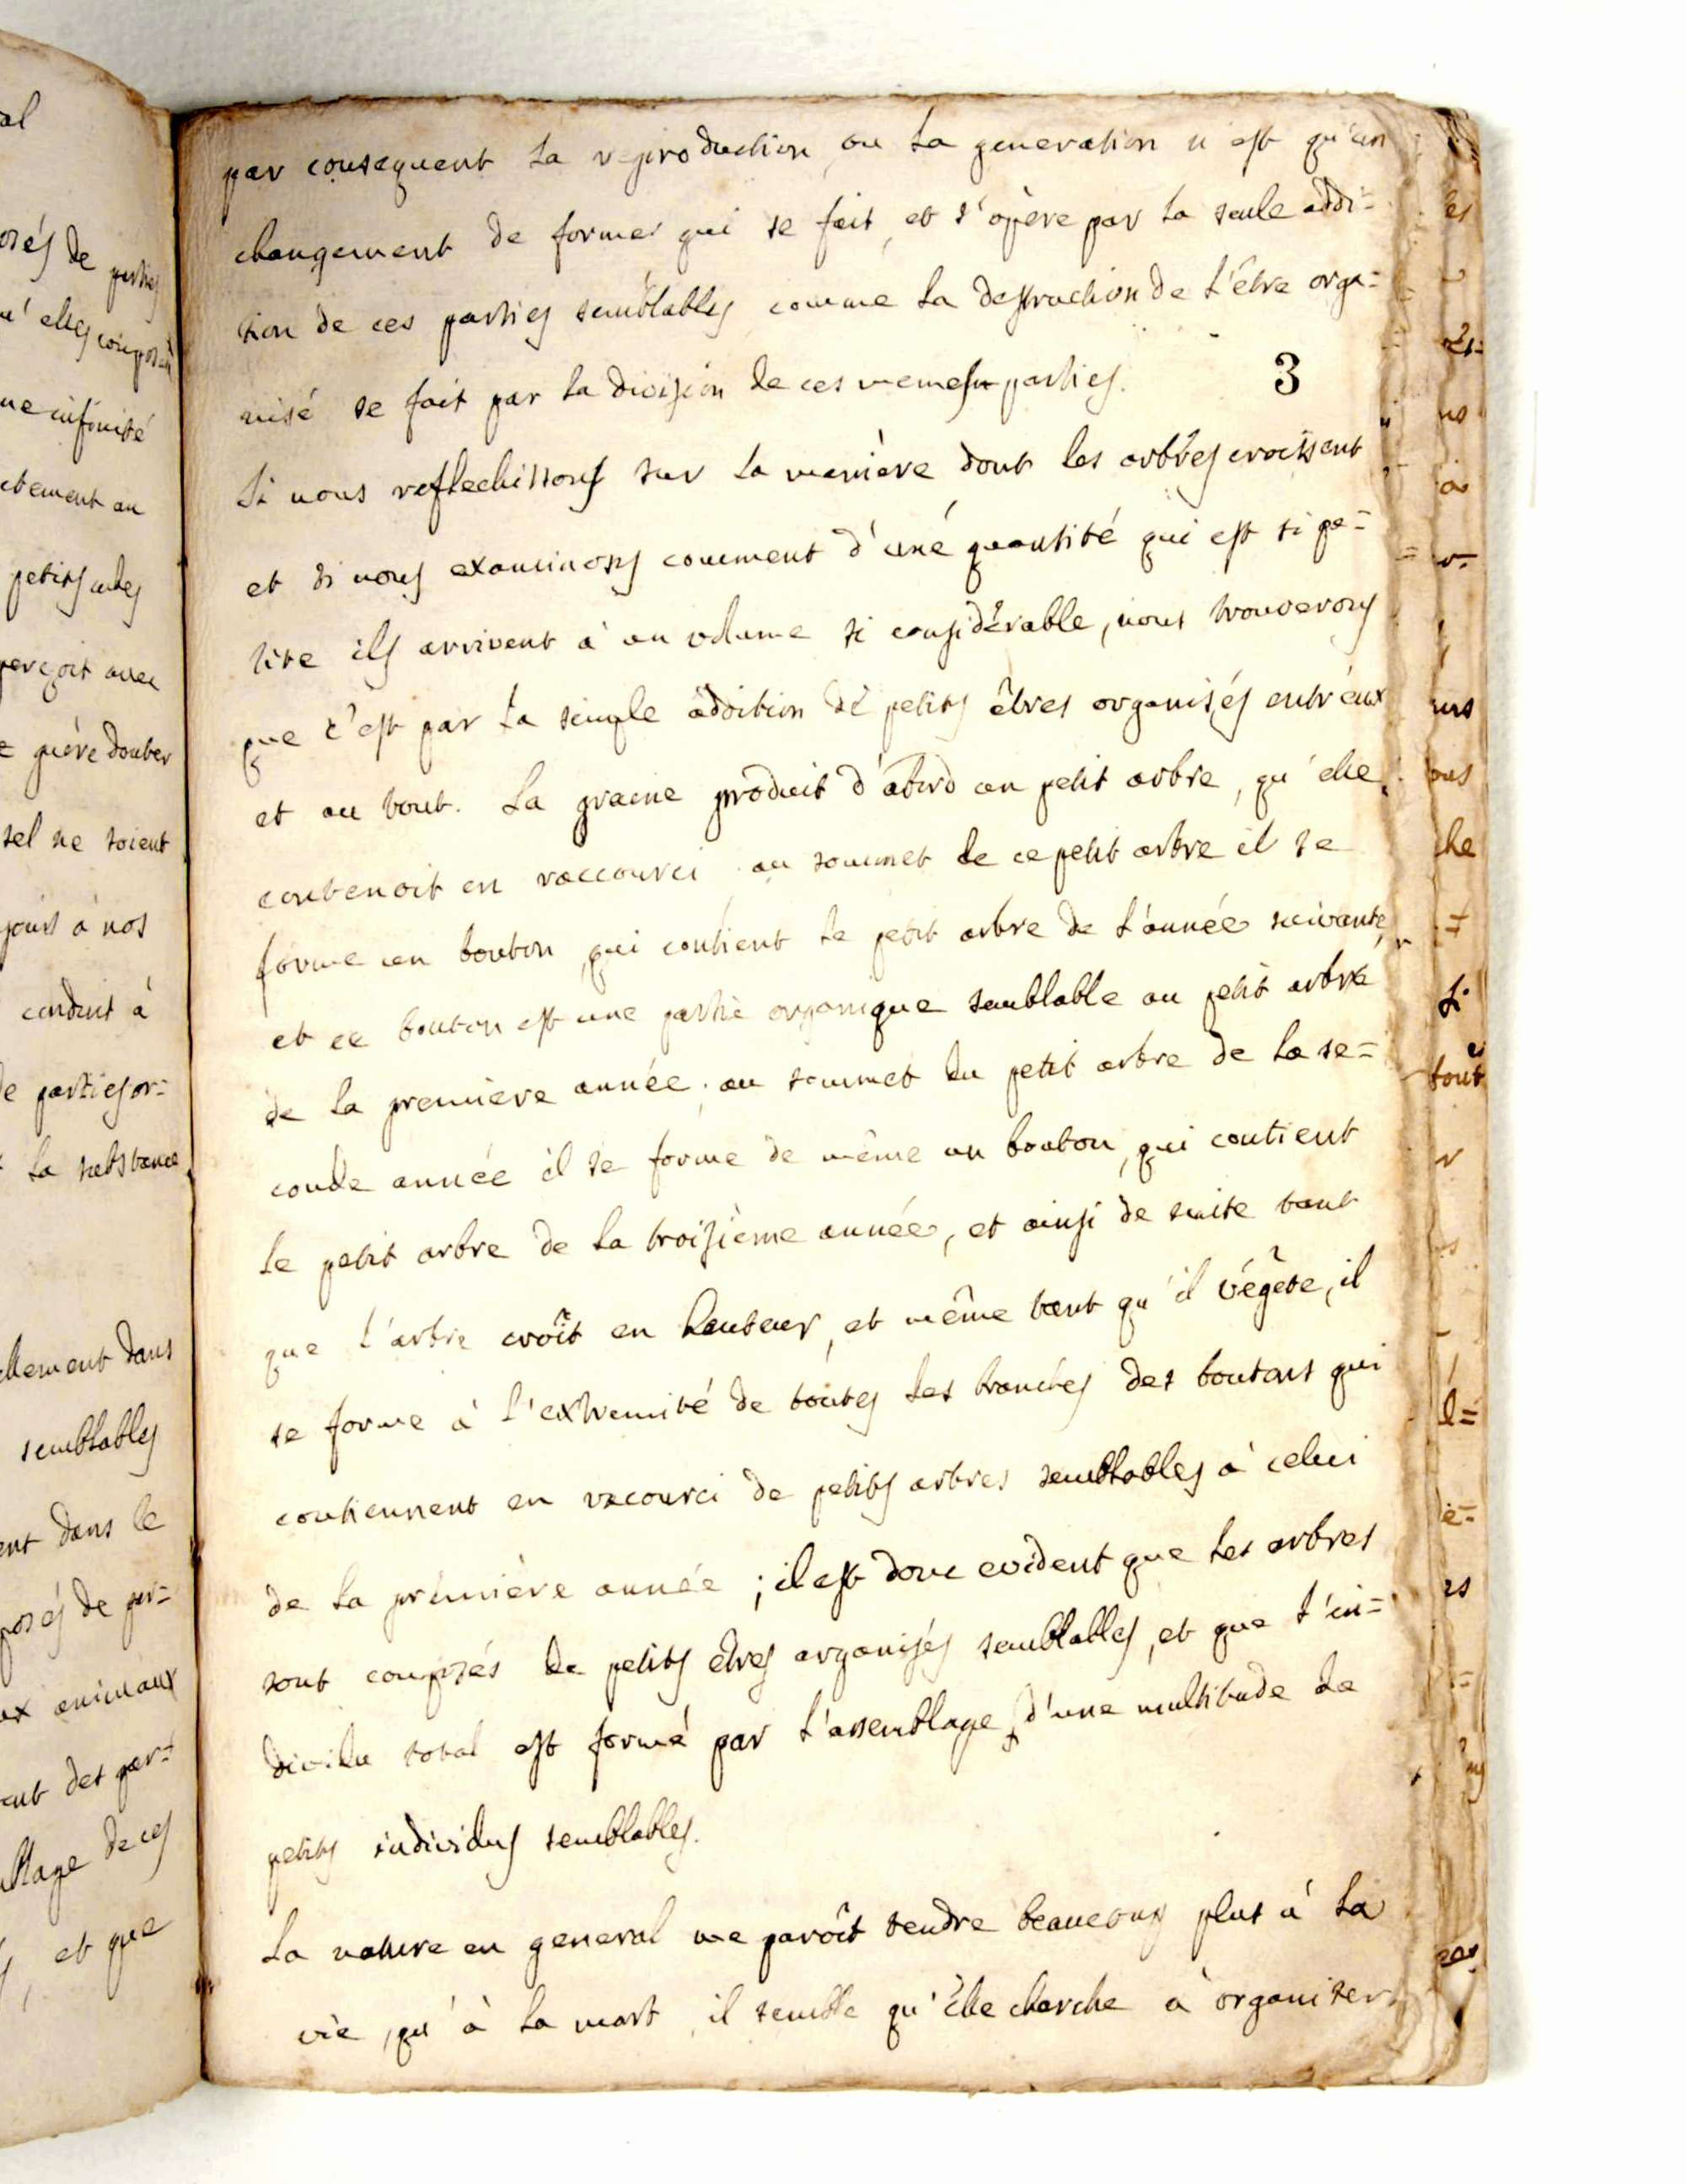 par consequent la reproduction, ou la generation n'est qu'un
changement de formes qui se fait, et s'opère par la seule addi=
tion de ces parties semblables comme la destruction de l'être orga=
nisé se fait par la division de ces memes parties.
3
Si nous reflechissons sur la manière dont les arbres croissent
et si nous examinons comment d'une quantité qui est si pe=
tite ils arrivent à un volume si considérable, nous trouverons
que c'est par la simple addition de petits êtres organisés entr'eux
et au tout. La graine produit d'abord un petit arbre, qu'elle
contenoit en raccourci au sommet de ce petit arbre il se
forme un bouton, qui contient le petit arbre de l'année suivante,
et ce bouton est une partie organique semblable au petit arbre
de la première année. au sommet du petit arbre de la se=
conde année il se forme de même un bouton, qui contient
le petit arbre de la troisième année, et ainsi de suite tant
que l'arbre croît en hauteur, et même tant qu'il végète, il
se forme à l'extremité de toutes les branches des boutons qui
contiennent en racourci de petits arbres semblables à celui
de la première année ; il est donc evident que les arbres
sont composés de petits êtres organisés semblables, et que l'in=
dividu total est formé par l'assemblage d'une multitude de
petits individus semblables.
La nature en general me paroît tendre beaucoup plus à la
vie, qu'à la mort, il semble qu'elle cherche à organiser